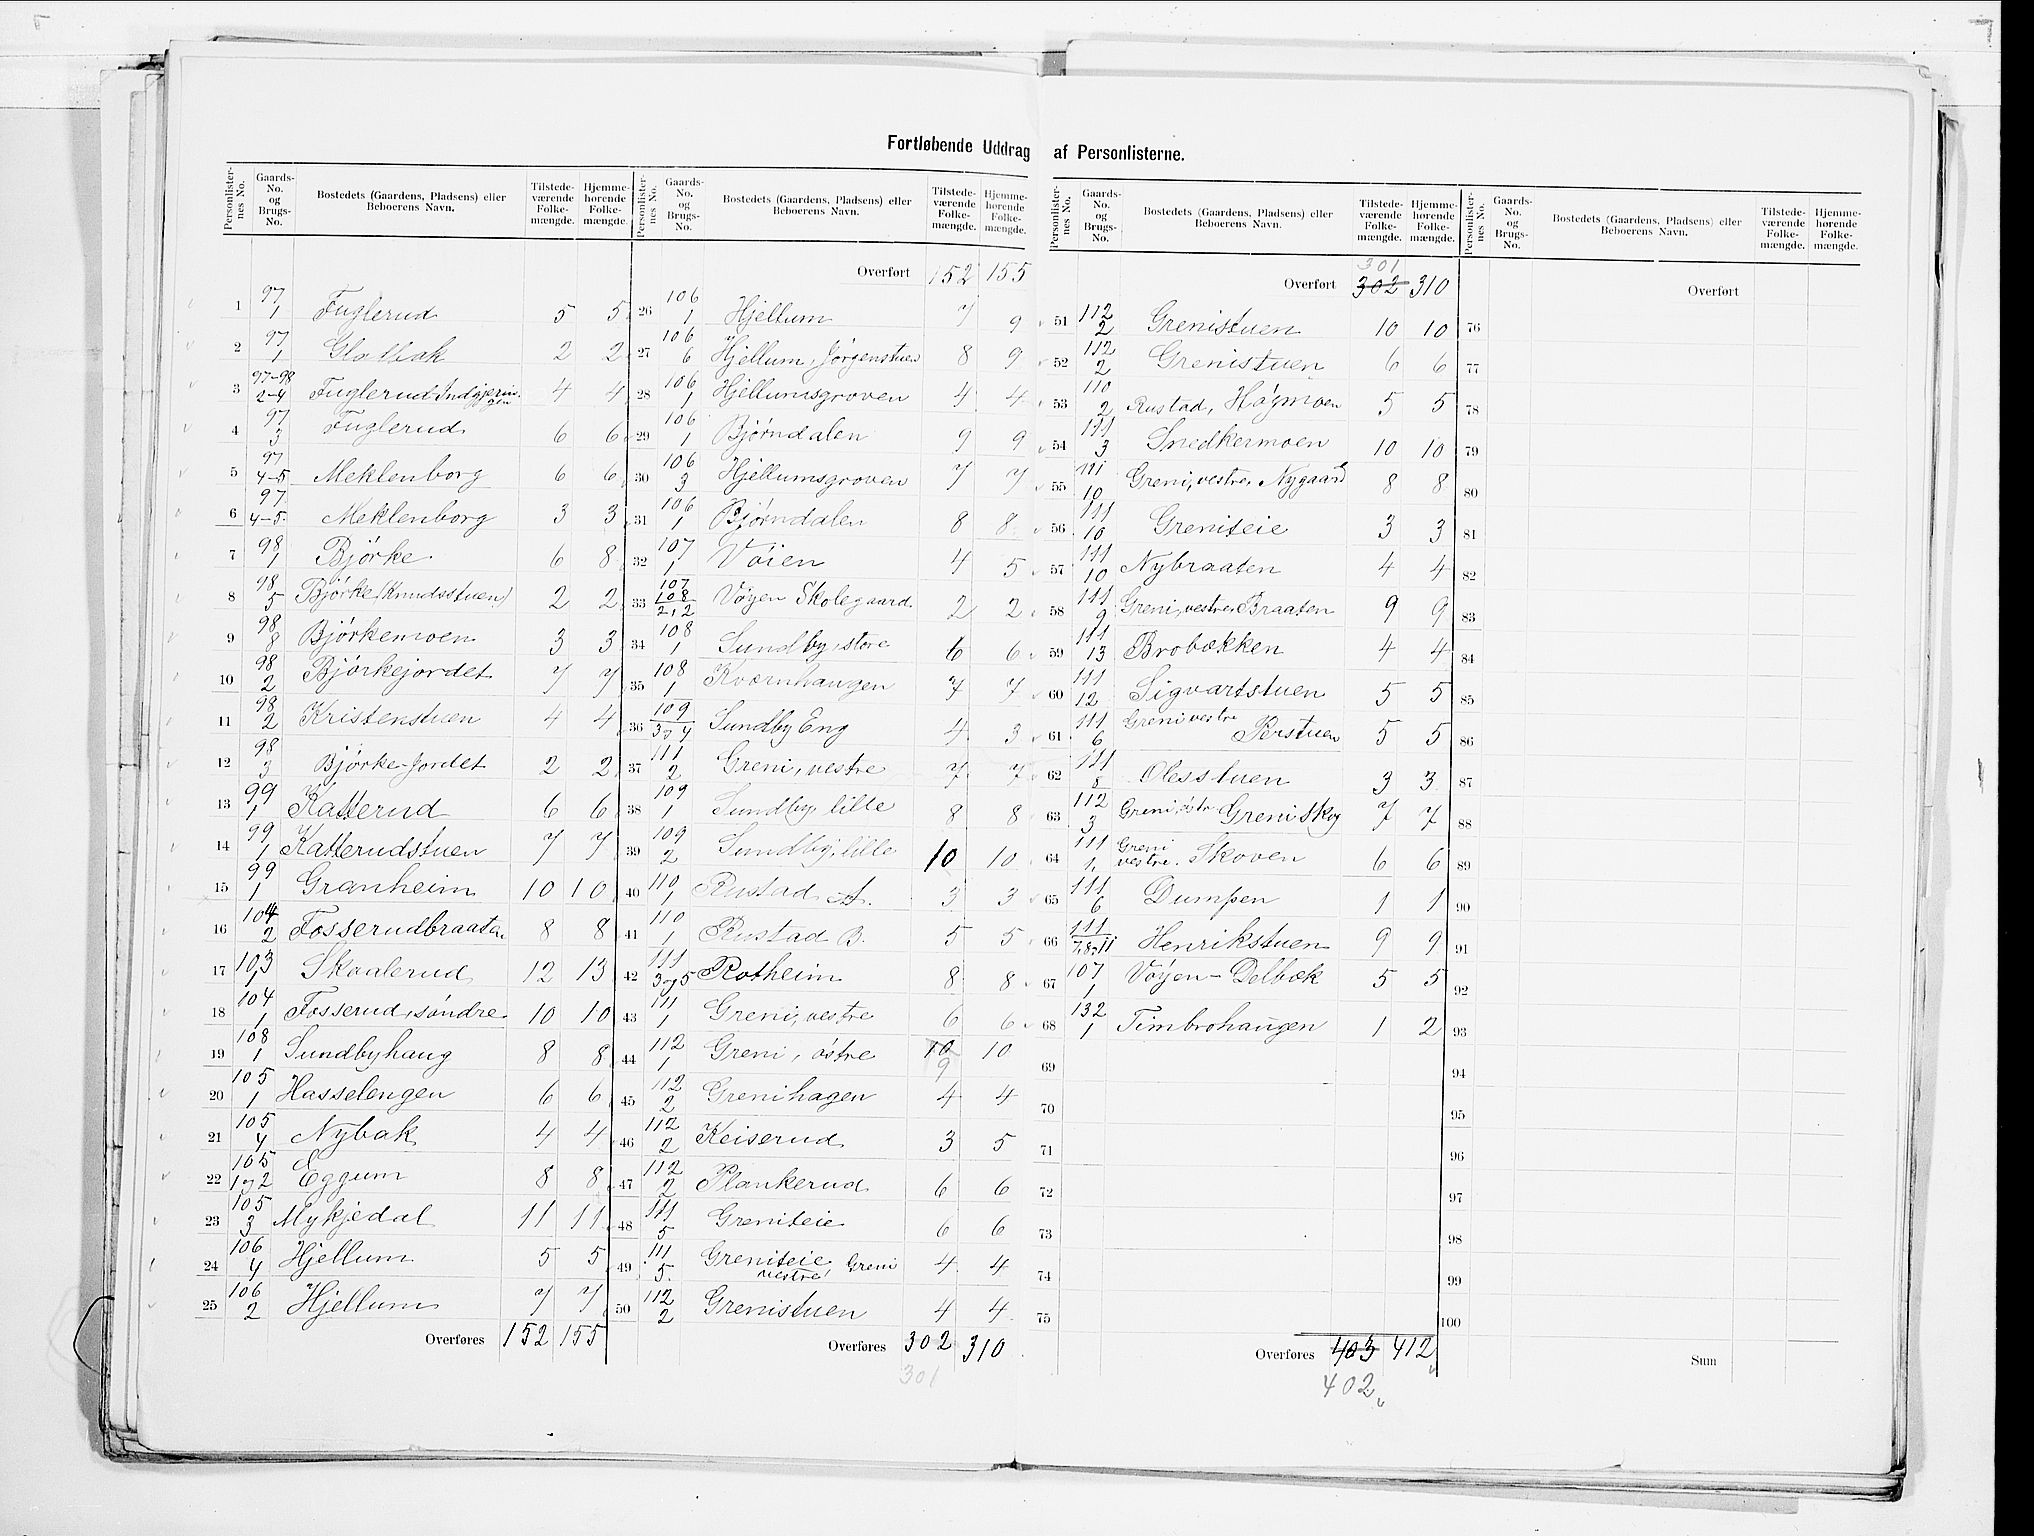 Fortløbende Uddrag af Personlisterne.
Personlister-nes No. Gaards-No. og Brugs-No. Bostedets (Gaardens, Pladsens) eller Beboerens Navn. Tilstede-værende Folke-mængde. Hjemme-hørende Folke-mængde.
1 97/1 Fuglerud 5 5
2 97/1 Glatbak 2 2
3 97-98/2-4 Fuglerud Indgjerin-gen 4 4
4 97/3 Fuglerud 6 6
5 97/4-5 Meklenborg 6 6
6 97/4-5. Meklenborg 3 3
7 98/1 Bjørke 6 8
8 98/5 Bjørke (Knudsstuen) 2 2
9 98/8 Bjørkemoen 3 3
10 98/2 Bjørkejordet 7 7
11 98/2 Kristenstuen 4 4
12 98/3 Bjørke-Jordet 2 2
13 99/1 Katterud 6 6
14 99/1 Katterudstuen 7 7
15 99/1 Granheim 10 10
16 104/2 Fosserudbraaten 8 8
17 103/1 Skaalerud 12 13
18 104/1 Fosserud, søndre 10 10
19 108/1 Sundbyhaug 8 8
20 105/1 Hasselengen 6 6
21 105/4 Nybak 4 4
22 105/1 og 2 Eggum 8 8
23 105/3 Mykjedal 11 11
24 106/4 Hjellum 5 5
25 106/2 Hjellum 7 7
Overføres 152 155
Personlister-nes No. Gaards-No. og Brugs-No. Bostedets (Gaardens, Pladsens) eller Beboerens Navn. Tilstede-værende Folke-mængde. Hjemme-hørende Folke-mængde.
Overført 152 155
26 106/1 Hjellum 7 9
27 106/6 Hjellum, Jørgenstuen 8 9
28 106/1 Hjellumsgroven 4 4
29 106/1 Bjørndalen 9 9
30 106/3 Hjellumsgroven 7 7
31 106/1 Bjørndalen 8 8
32 107/1 Vøien 4 5
33 107 108/2,2 Vøyen Skolegaard. 2 2
34 108/1 Sundby, store 6 6
35 108/1 Kværnhaugen 7 7
36 109/3 og 4 Sundby Eng 4 3
37 111/2 Greni, vestre 7 7
38 109/1 Sundby, lille 8 8
39 109/2 Sundby, lille 10 10
40 110/1 Rustad A. 3 3
41 110/1 Rustad B. 5 5
42 111/3 og 5 Rotheim 8 8
43 111/1 Greni, vestre 6 6
44 112/1 Greni, østre 10 10
9
45 112/2 Grenihagen 4 4
46 112/2 Keiserud 3 5
47 112/2 Plankerud 6 6
48 111/5 Greniteie 6 6
49 111/5. Greniteie Greni vestre 4 4
50 112/2 Grenistuen 4 4
Overføres 302 310
301
Personlister-nes No. Gaards-No. og Brugs-No. Bostedets (Gaardens, Pladsens) eller Beboerens Navn. Tilstede-værende Folke-mængde. Hjemme-hørende Folke-mængde.
301
Overført 302 310
51 112/2 Grenistuen 10 10
52 112/2 Grenistuen 6 6
53 110/2 Rustad, Høgmoen 5 5
54 111/3 Snedkermoen 10 10
55 111/10 Greni, vestre, Nygaard 8 8
56 111/10 Greniteie 3 3
57 111/10 Nybraaten 4 4
58 111/9 Greni, vestre Braaten 9 9
59 111/13 Brobækken 4 4
60 111/12 Sigvartstuen 5 5
61 111/6 Greni vestre Perstuen 5 5
62 111/8 Olesstuen 3 3
63 112/3 Greni, østr Greni Skog 7 7
64 111/1. Greni vestre. Skoven 6 6
65 111/6 Dumpen 1 1
66 111/7,8,11 Henrikstuen 9 9
67 107/1 Vøyen-Delbæk 5 5
68 132/1 Timbrohaugen 1 2
69
70
71
72
73
74
75
Overføres 403 412
402
Personlister-nes No. Gaards-No. og Brugs-No. Bostedets (Gaardens, Pladsens) eller Beboerens Navn. Tilstede-værende Folke-mængde. Hjemme-hørende Folke-mængde.
Overført
76
77
78
79
80
81
82
83
84
85
86
87
88
89
90
91
92
93
94
95
96
97
98
99
100
Sum